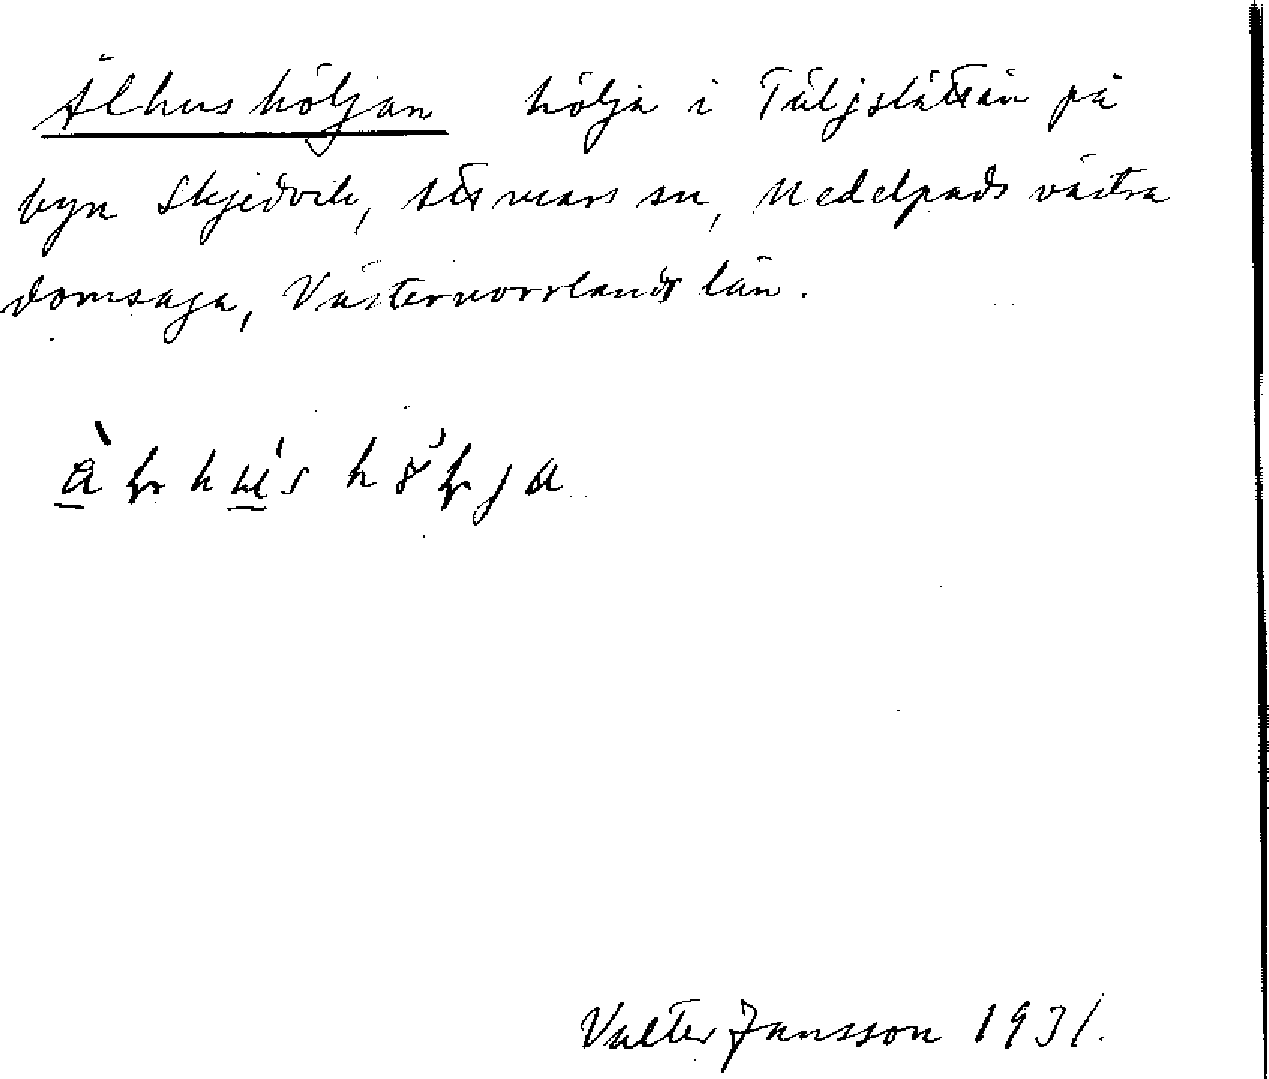 Älhushöljan hölja i Täljslättån på
byn Skjedvik, Attmars sn, Medelpads västra
domsaga, Västernorrlands län.
Valter Jansson 1931.